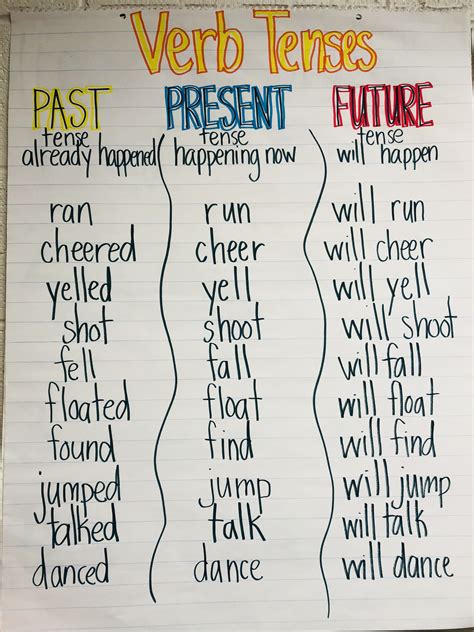 Verb Tenses
PAST PRESENT FUTURE
tense tense tense
already happened happening now will happen
ran run will run
cheered cheer will cheer
yelled yell will yell
shot shoot will shoot
fell fall will fall
floated float will float
found find will find
jumped jump will jump
talked talk will talk
danced dance will dance